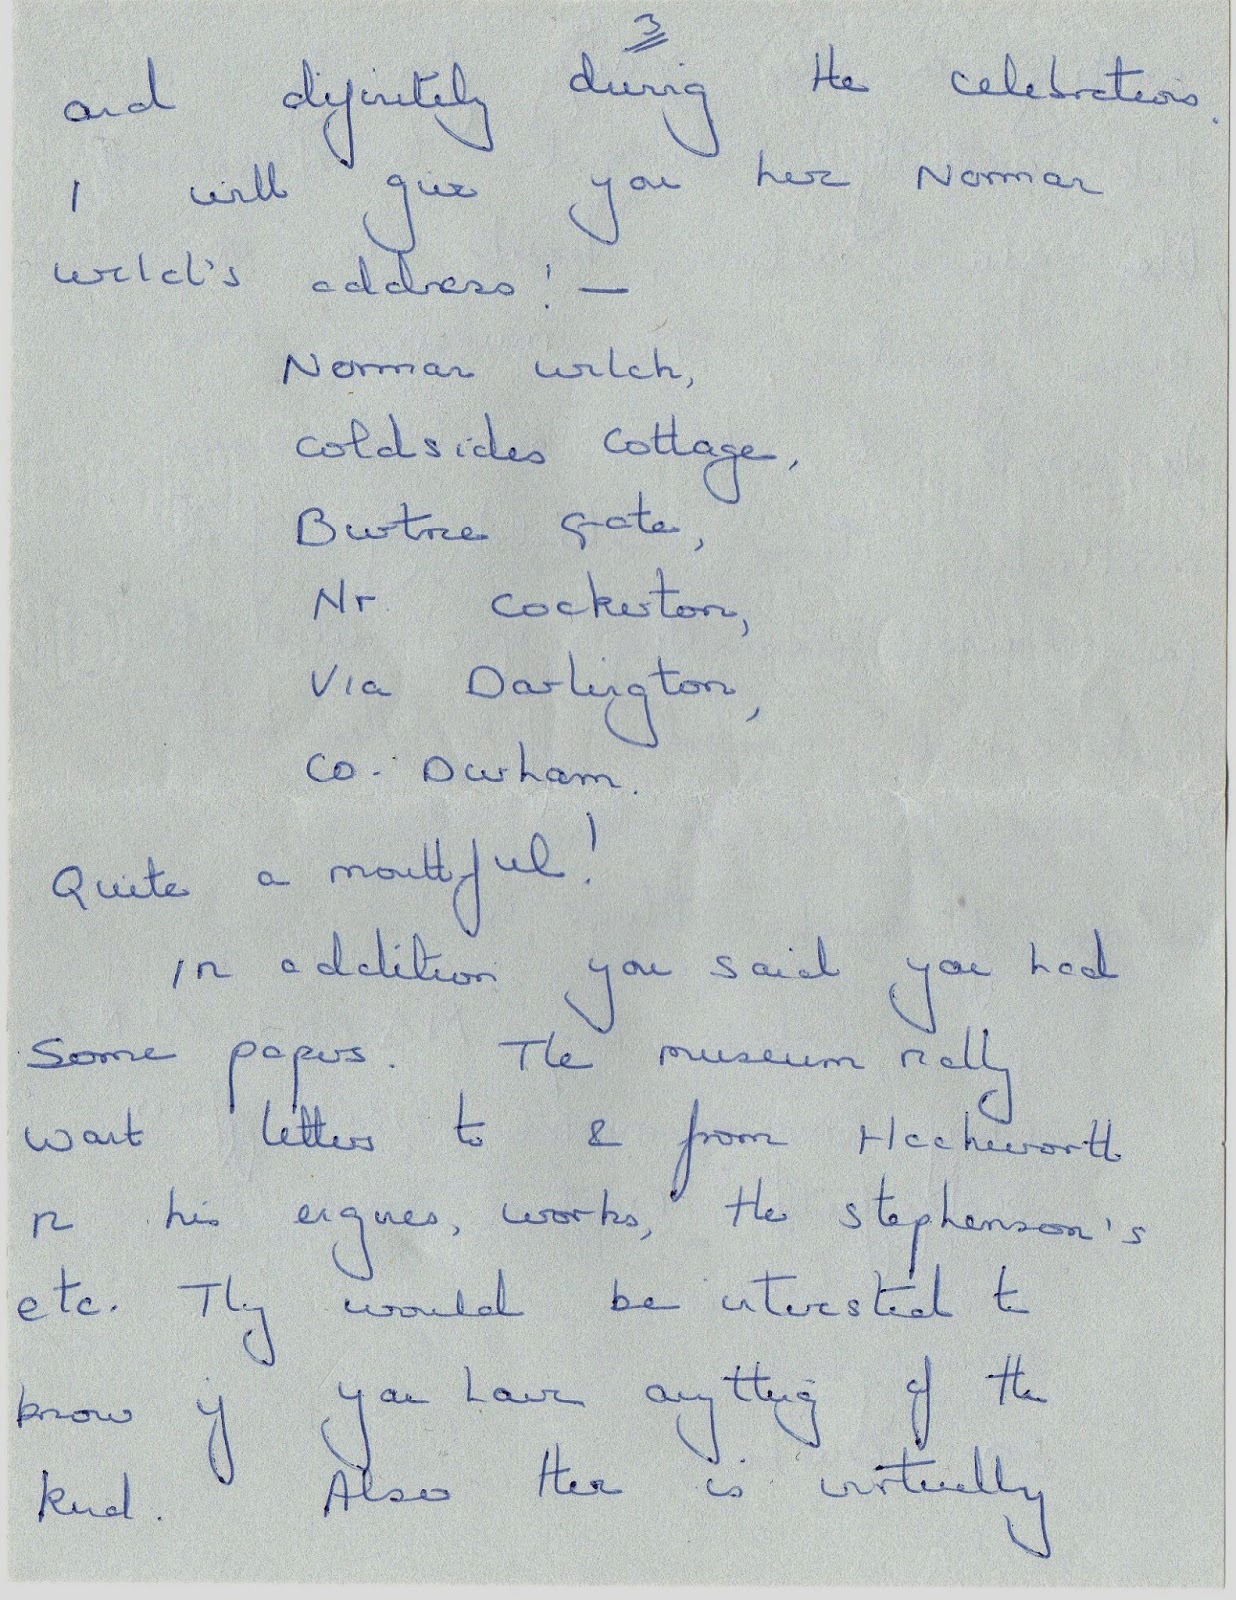 3
and definitely during the celebrations.
I will give you here Norman
Welch's address! —
Norman Welch,
Coldsides Cottage,
Burtree Gate,
Nr. Cockerton,
Via Darlington,
Co. Durham.
Quite a mouthful!
In addition you said you had
some papers. The museum really
want letters to & from Hackworth
re his engines, works, the Stephenson's
etc. They would be interested to
know if you have anything of the
kind. Also there is virtually